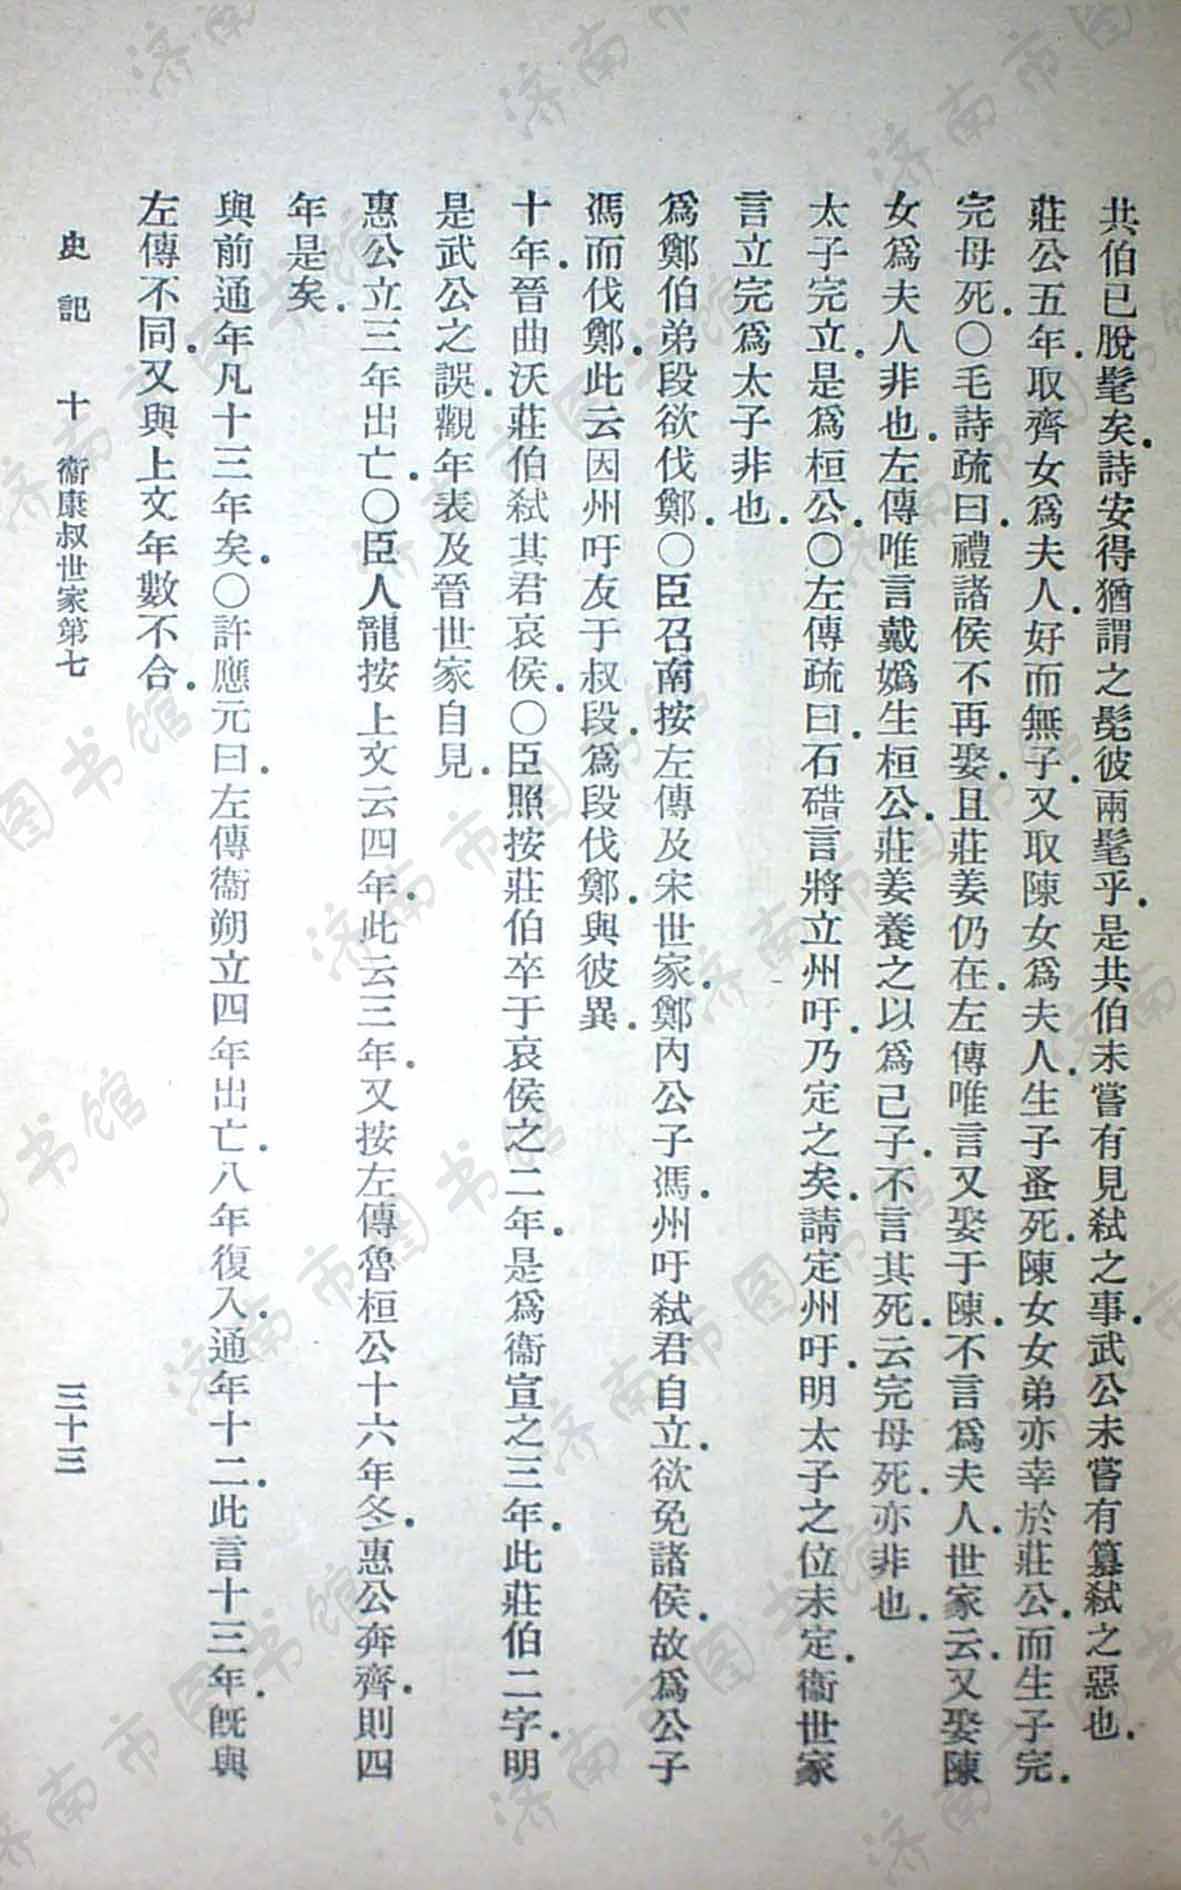 共伯已脫髦矣.詩安得猶謂之髧彼兩髦乎.是共伯未嘗有見弒之事.武公未嘗有篡弒之惡也.
莊公五年.取齊女爲夫人.好而無子.又取陳女爲夫人.生子蚤死.陳女女弟亦幸於莊公.而生子完.
完母死.〇毛詩疏曰.禮諸侯不再娶.且莊姜仍在.左傳唯言又娶于陳.不言爲夫人.世家云.又娶陳
女爲夫人非也.左傳唯言戴嬀生桓公.莊姜養之以爲己子.不言其死.云完母死.亦非也.
太子完立.是爲桓公.〇左傳疏曰.石碏言將立州吁.乃定之矣.請定州吁.明太子之位未定.衞世家
言立完爲太子非也.
爲鄭伯弟段欲伐鄭.〇臣召南按左傳及宋世家.鄭內公子馮.州吁弒君自立.欲免諸侯.故爲公子
馮而伐鄭.此云因州吁友于叔段.爲段伐鄭.與彼異.
十年.晉曲沃莊伯弒其君哀侯.〇臣照按莊伯卒于哀侯之二年.是爲衞宣之三年.此莊伯二字.明
是武公之誤.觀年表及晉世家自見.
惠公立三年出亡.〇臣人龍按上文云四年.此云三年.又按左傳魯桓公十六年冬.惠公奔齊.則四
年是矣.
與前通年凡十三年矣.〇許應元曰.左傳衞朔立四年出亡.八年復入.通年十二.此言十三年.旣與
左傳不同.又與上文年數不合.
史記 十 衞康叔世家第七 三十三
济南市图书馆